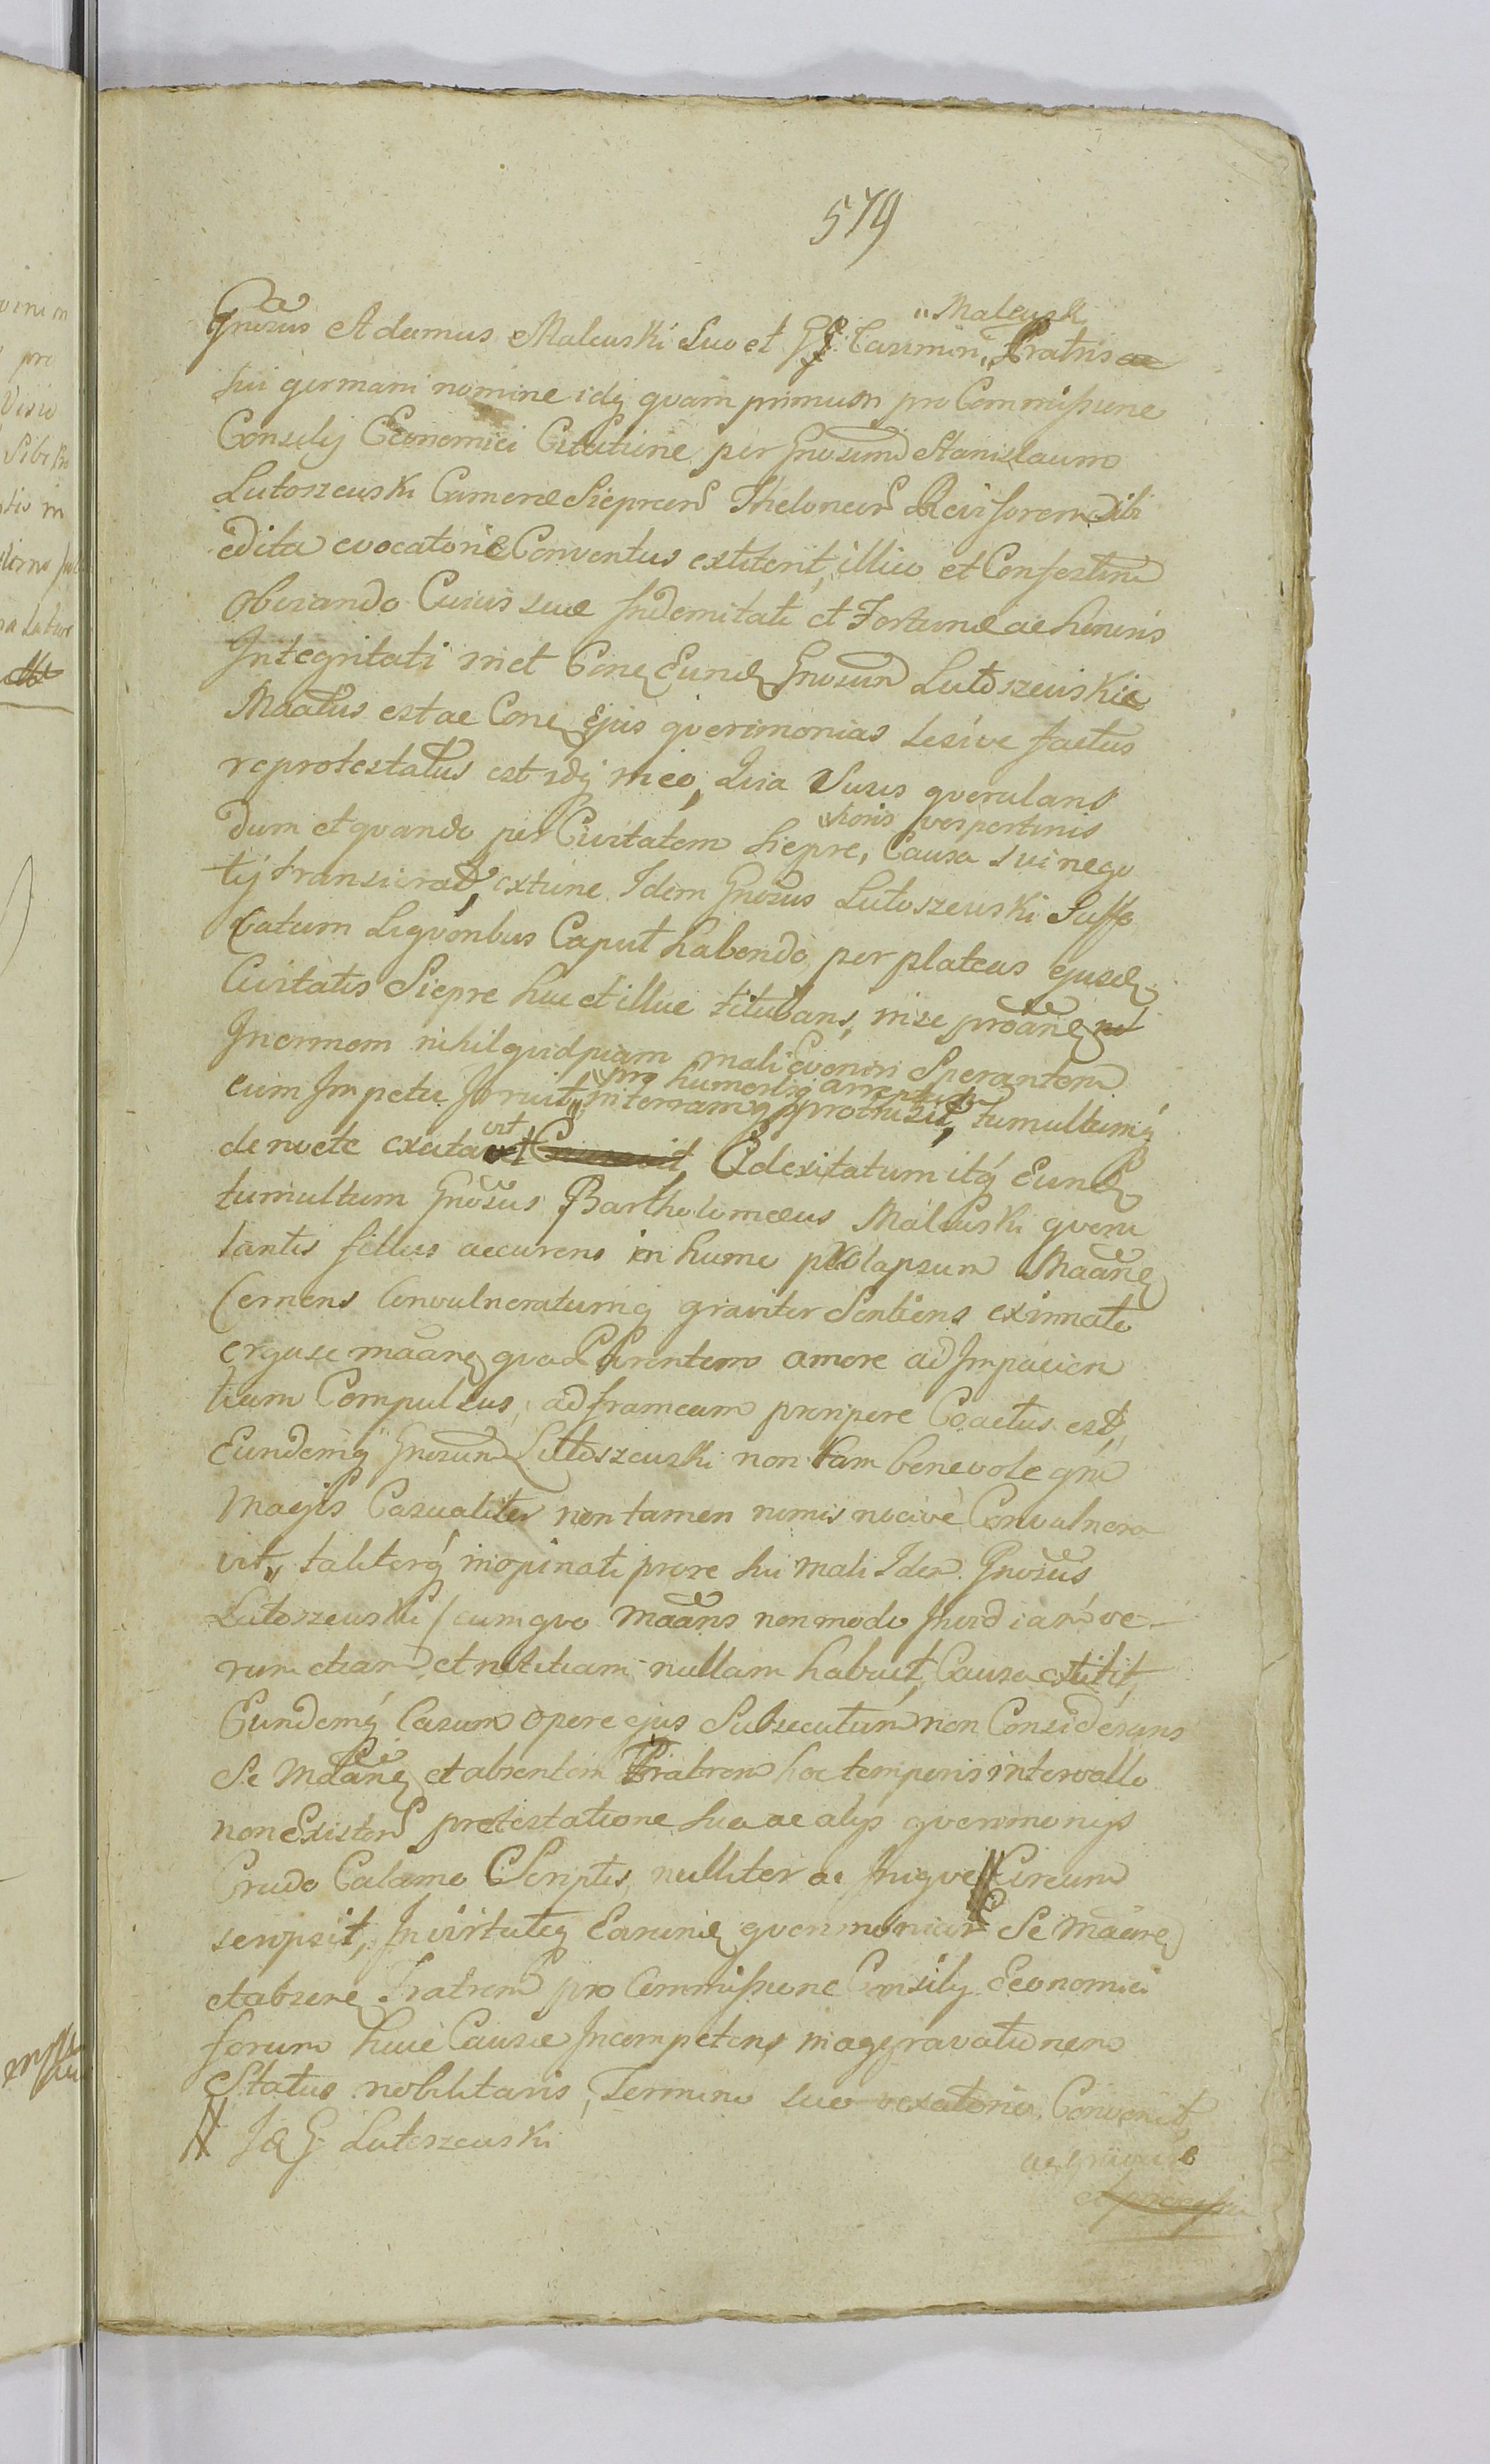 579
Gnosus Adamus Malewski Suo et G. Casimiri „Malewsk Fratris
sui germani nomine idq quam primum pro Commissione
Consilij Economici Citatione per Gnosum Stanislaum
Lutoszewski Camerae Sieprcens Theloneor Revisorem sibi
edita evocatorie Conventus extiterit, illico et Confestim
obviando Curis suae Indemnitati et Fortunae ac honoris
Integritati met Con Eund Gnosum Lutoszewski
Maatus est ac Con Ejus querimonias lesive factus
reprotestatus est idq in eo, Quia Suus querulans
dum et quando per Civitatem Siepre, horis vespertinis Causa sui nego
tij transierat, extunc Idem Gnosus Lutoszewski Suffo
catum Liquoribus Caput habendo per plateas ejusd
Civitatis Siepre huc et illuc titubans, in se proane
Inermem nihil quidpiam mali Evenire Sperantem
cum Impetu Irruit, pro humeriq arreptum in terramq protrusit, tumultumq
de nocte excitavit Ad exitatum itq Eund
tumultum Gnosus Bartholomaeus Malewski queru
lantis filius accurens in humo prolapsum Maane
Cernens Convulneratumq graviter Sentiens ex innato
erga se maane quod Parentem amore ad Impacien
tiam Compulsus, ad frameam proripere Coactus est,
Eundemq Gnosum Lutoszewski non tam benevole qm
Magis Casualiter non tamen nimis nocive Convulnera
vit„ taliterq inopinati prore hui mali Idem Gnosus
Lutoszewski / cum quo Maans non modo Invidiam ve-
rum etiam et notitiam nullam habuit, Causa extitit,
Eundemq Casum opere ejus Subsecutum non Considerans
Se Maane et absentem Fratrem hoc temporis intervallo
non Existen protestatione sua ac alijs querimonijs
Crudo Calamo Scriptis nulliter ac Inique Circum
scripsit, In virtute Earund querimoniar Se Maane
et absene Fratrem pro Commissione Consilij Economici
forum huic Causae Incompetens in aggravationem
Status nobilitaris, Termino suo vexatorio Convenit
# Id G Lutoszewski